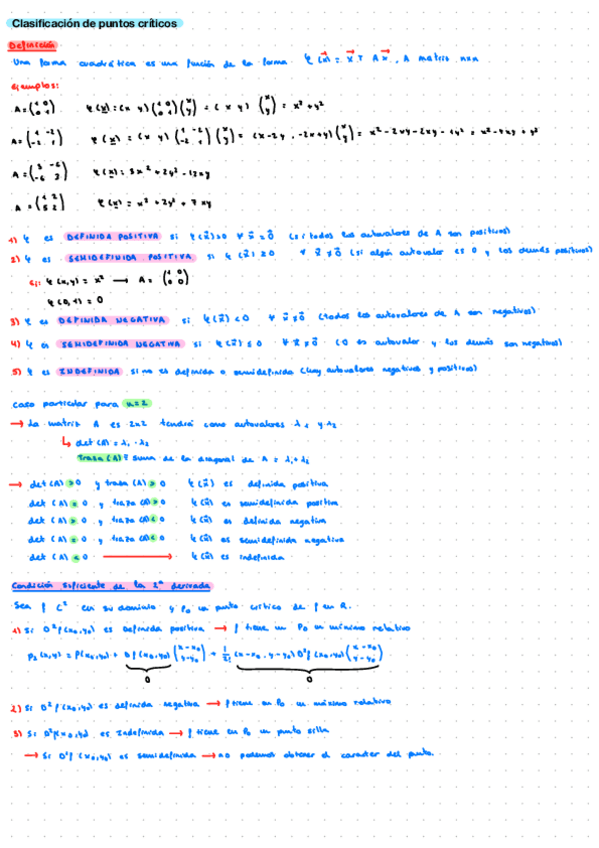 Clasificación de puntos críticos
Definición
Una forma cuadrática es una función de la forma φ(x) = x^T A x, A matriz nxn
ejemplos:
A = (1 0 / 0 1) φ(x) = (x y) (1 0 / 0 1) (x / y) = (x y) (x / y) = x² + y²
A = (1 -2 / -2 1) φ(x) = (x y) (1 -2 / -2 1) (x / y) = (x-2y, -2x+y) (x / y) = x² - 2xy - 2xy + y² = x² - 4xy + y²
φ(x) = 3x² + 2y² - 12xy
φ(x) = x² + 2y² + 7xy
1) φ es DEFINIDA POSITIVA si φ(x) > 0 ∀ (si todos los autovalores de A son positivos)
2) φ es SEMIDEFINIDA POSITIVA si φ(x) ≥ 0 ∀ x ≠ 0 (si algún autovalor es 0 y los demás positivos)
Ej: φ(x,y) = x² → A = (1 0 / 0 0)
φ(0,1) = 0
3) φ es DEFINIDA NEGATIVA si φ(x) < 0 ∀ x ≠ 0 (todos los autovalores de A son negativos)
4) φ es SEMIDEFINIDA NEGATIVA si φ(x) ≤ 0 ∀ x ≠ 0 (0 es autovalor y los demás son negativos)
5) φ es INDEFINIDA si no es definida o semidefinida (hay autovalores negativos y positivos)
caso particular para n=2
→ La matriz A es 2x2 tendrá como autovalores λ₁ y λ₂
↳ det(A) = λ₁ · λ₂
Traza(A) = suma de la diagonal de A = λ₁ + λ₂
→ det(A) > 0 y traza(A) > 0 φ(x) es definida positiva
det(A) = 0 y traza(A) > 0 φ(x) es semidefinida positiva
det(A) > 0 y traza(A) < 0 φ(x) es definida negativa
det(A) = 0 y traza(A) < 0 φ(x) es semidefinida negativa
det(A) < 0 → φ(x) es indefinida
Condición suficiente de la 2ª derivada
Sea f C² en su dominio y P₀ un punto crítico de f en R.
1) Si D²f(x₀,y₀) es definida positiva → f tiene un P₀ un mínimo relativo
P₂(x,y) = f(x₀,y₀) + Df(x₀,y₀) (x-x₀ / y-y₀) + 1/2! (x-x₀, y-y₀) D²f(x₀,y₀) (x-x₀ / y-y₀)
0 0
2) Si D²f(x₀,y₀) es definida negativa → f tiene en P₀ un máximo relativo
3) Si D²f(x₀,y₀) es Indefinida → f tiene en P₀ un punto silla
→ Si D²f(x₀,y₀) es semidefinida → no podemos obtener el caracter del punto.